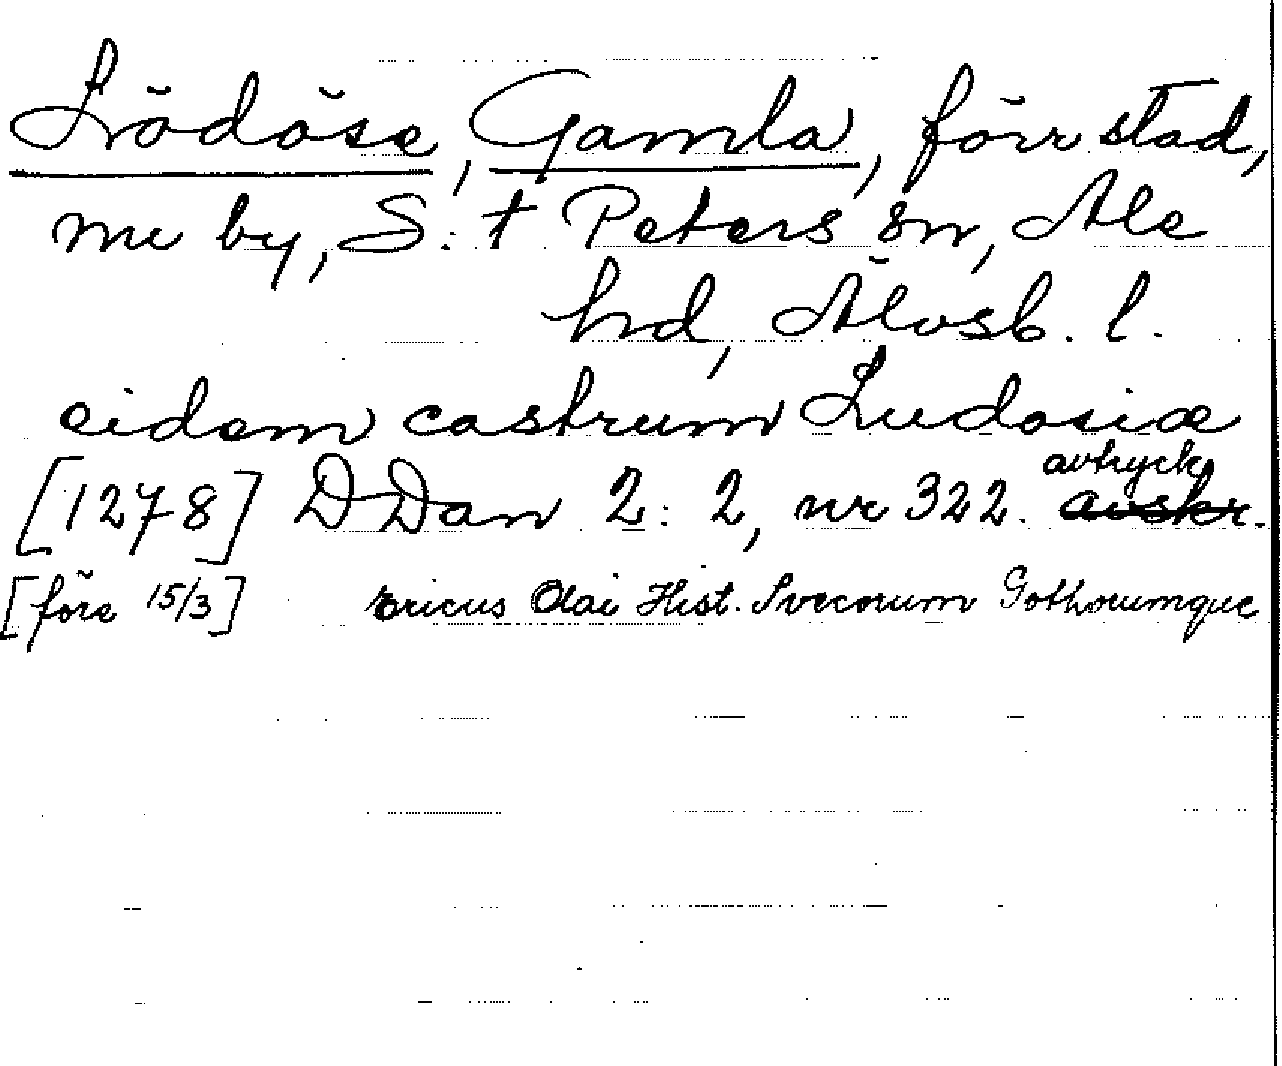 Lödöse, Gamla, förr stad,
nu by, S:t Peters sn, Ale
hd, Älvsb. l.
eidem castrum Ludosiæ
avtryck
[1278] DDan 2:2, nr 322. avskr.
[före 15/3] Ericus Olai Hist. Svecorum Gothorumque